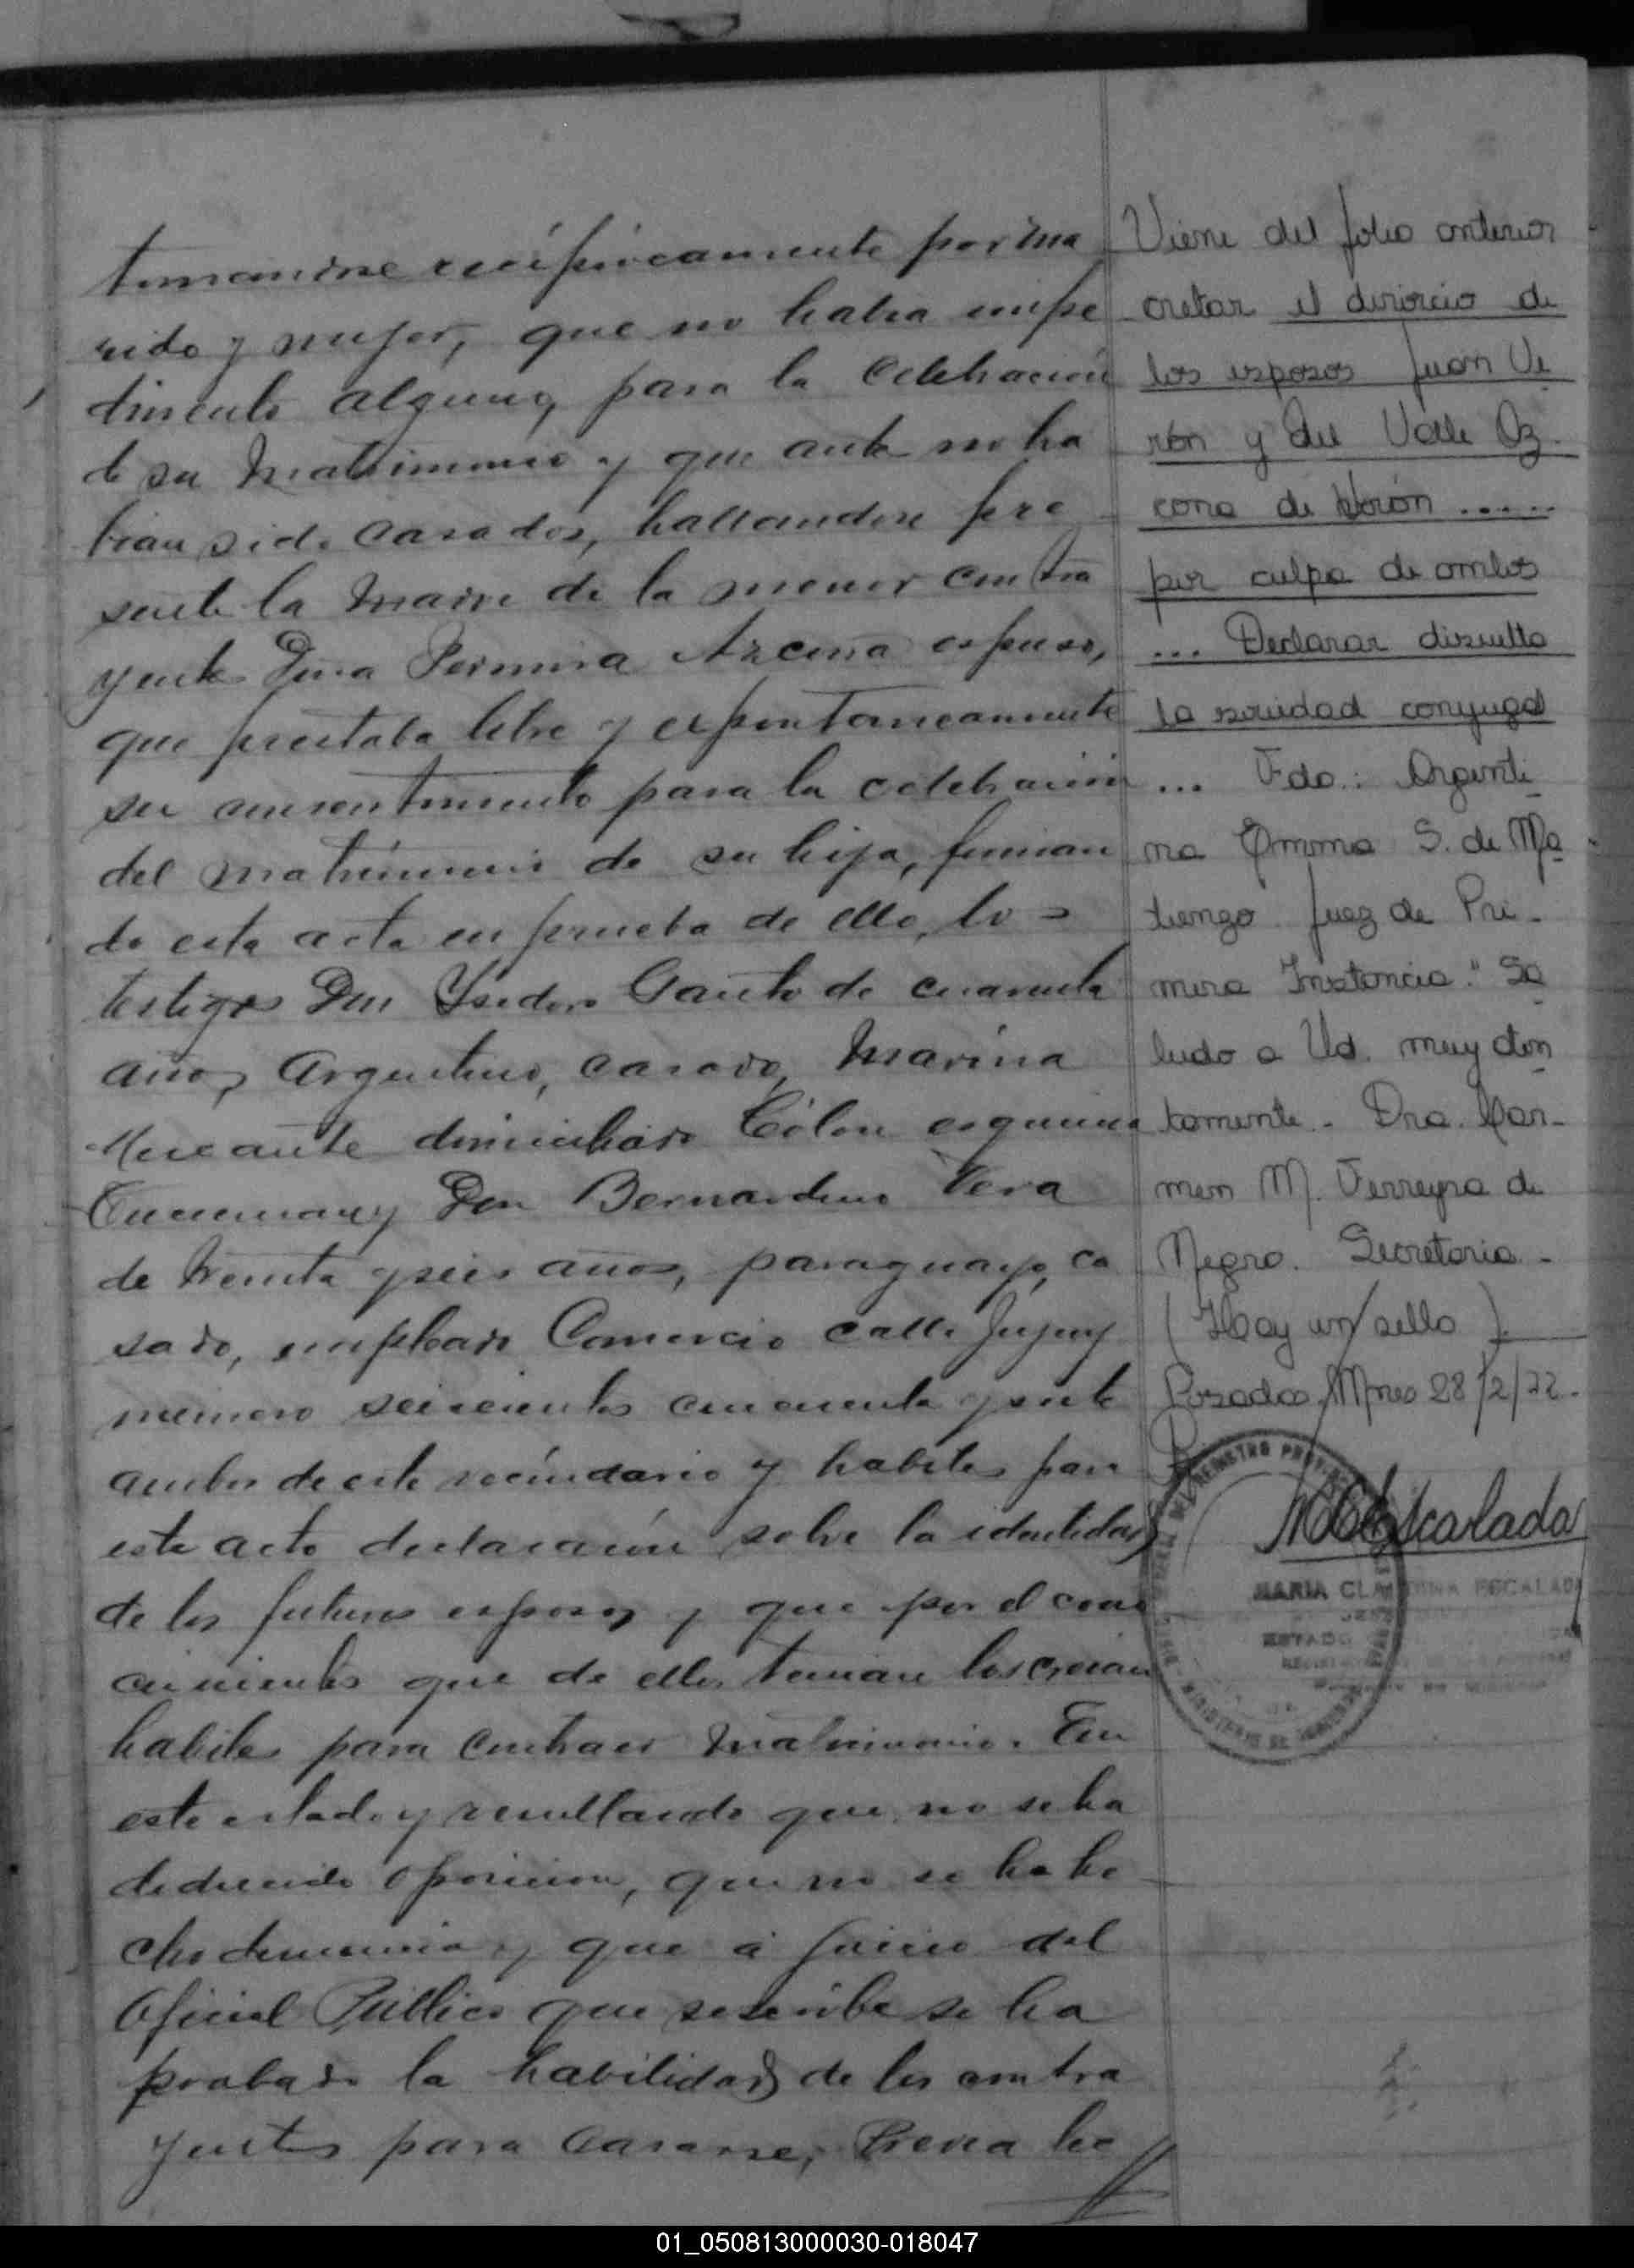 tomandose recíprocamente por ma
rido y mujer, que no habia impe
dimento alguno, para la celebracion
de su matrimonio y que ante no ha
bian sido casados, hallandose pre
sente la madre de la menor contra
yente Doña Fermina Azcona espuso,
que prestaba libre y expontaneamente
su consentimiento para la celebracion
del matrimonio de su hija, firman
do esta acta en prueba de ello, los
testigos Don Ysidoro Gauto de cuarenta
años, Argentino, casado, Marina
Mercante domiciliado Cólon esquina
Tucuman y Don Bernardino Vera
de treinta y seis años, paraguayo, ca
sado, empleado Comercio calle Jujuy
número seiscientos cincuenta y siete
ambos de este vecindario y habiles para
este acto declararon sobre la identidad
de los futuros esposos y que por el cono
cimientos que de ellos tenian los creian
habiles para contraer matrimonio. En
este estado y resultando que no se ha
deducido oposicion, que no se ha he
cho denuncia y que á juicio del
Oficial Público que suscribe se ha
probado la habilidad de los contra
yentes para casarse, Previa lec
Viene del folio anterior
cretar el divorcio de
los esposos Juan Ve
rón y del Valle Az
cona de Verón .....
por culpa de ambos
... Declarar disuelta
la sociedad conyugal
... Fdo.: Argenti
na Emma S. de Ma
tienzo Juez de Pri-
mera Instancia." Sa
ludo a Ud. muy aten
tamente. Dra. Car-
men M. Ferreyra de
Negro. Secretaria.-
(Hay un sello).
Posadas, Mnes 28/2/72.-
MCEscalada
MARIA CLA INA ESCALADA
ESTADO